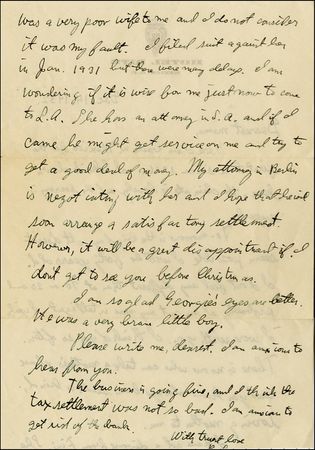 was a very poor wife to me and I do not consider
it was my fault. I filed suit against her
in Jan. 1931 but there were many delays. I am
wondering if it is wise for me just now to come
to L.A. She has an attorney in L.A. and if I
came he might get service on me and try to
get a good deal of money. My attorney in Berlin
is negotiating with her and I hope that he will
soon arrange a satisfactory settlement.
However, it will be a great disappointment if I
don't get to see you before Christmas.
I am so glad Georgie's eyes are better.
He was a very brave little boy.
Please write me, dearest. I am anxious to
hear from you.
The business is going fine, and I think the
tax settlement was not so bad. I am anxious to
get rid of the bank.
With truest love